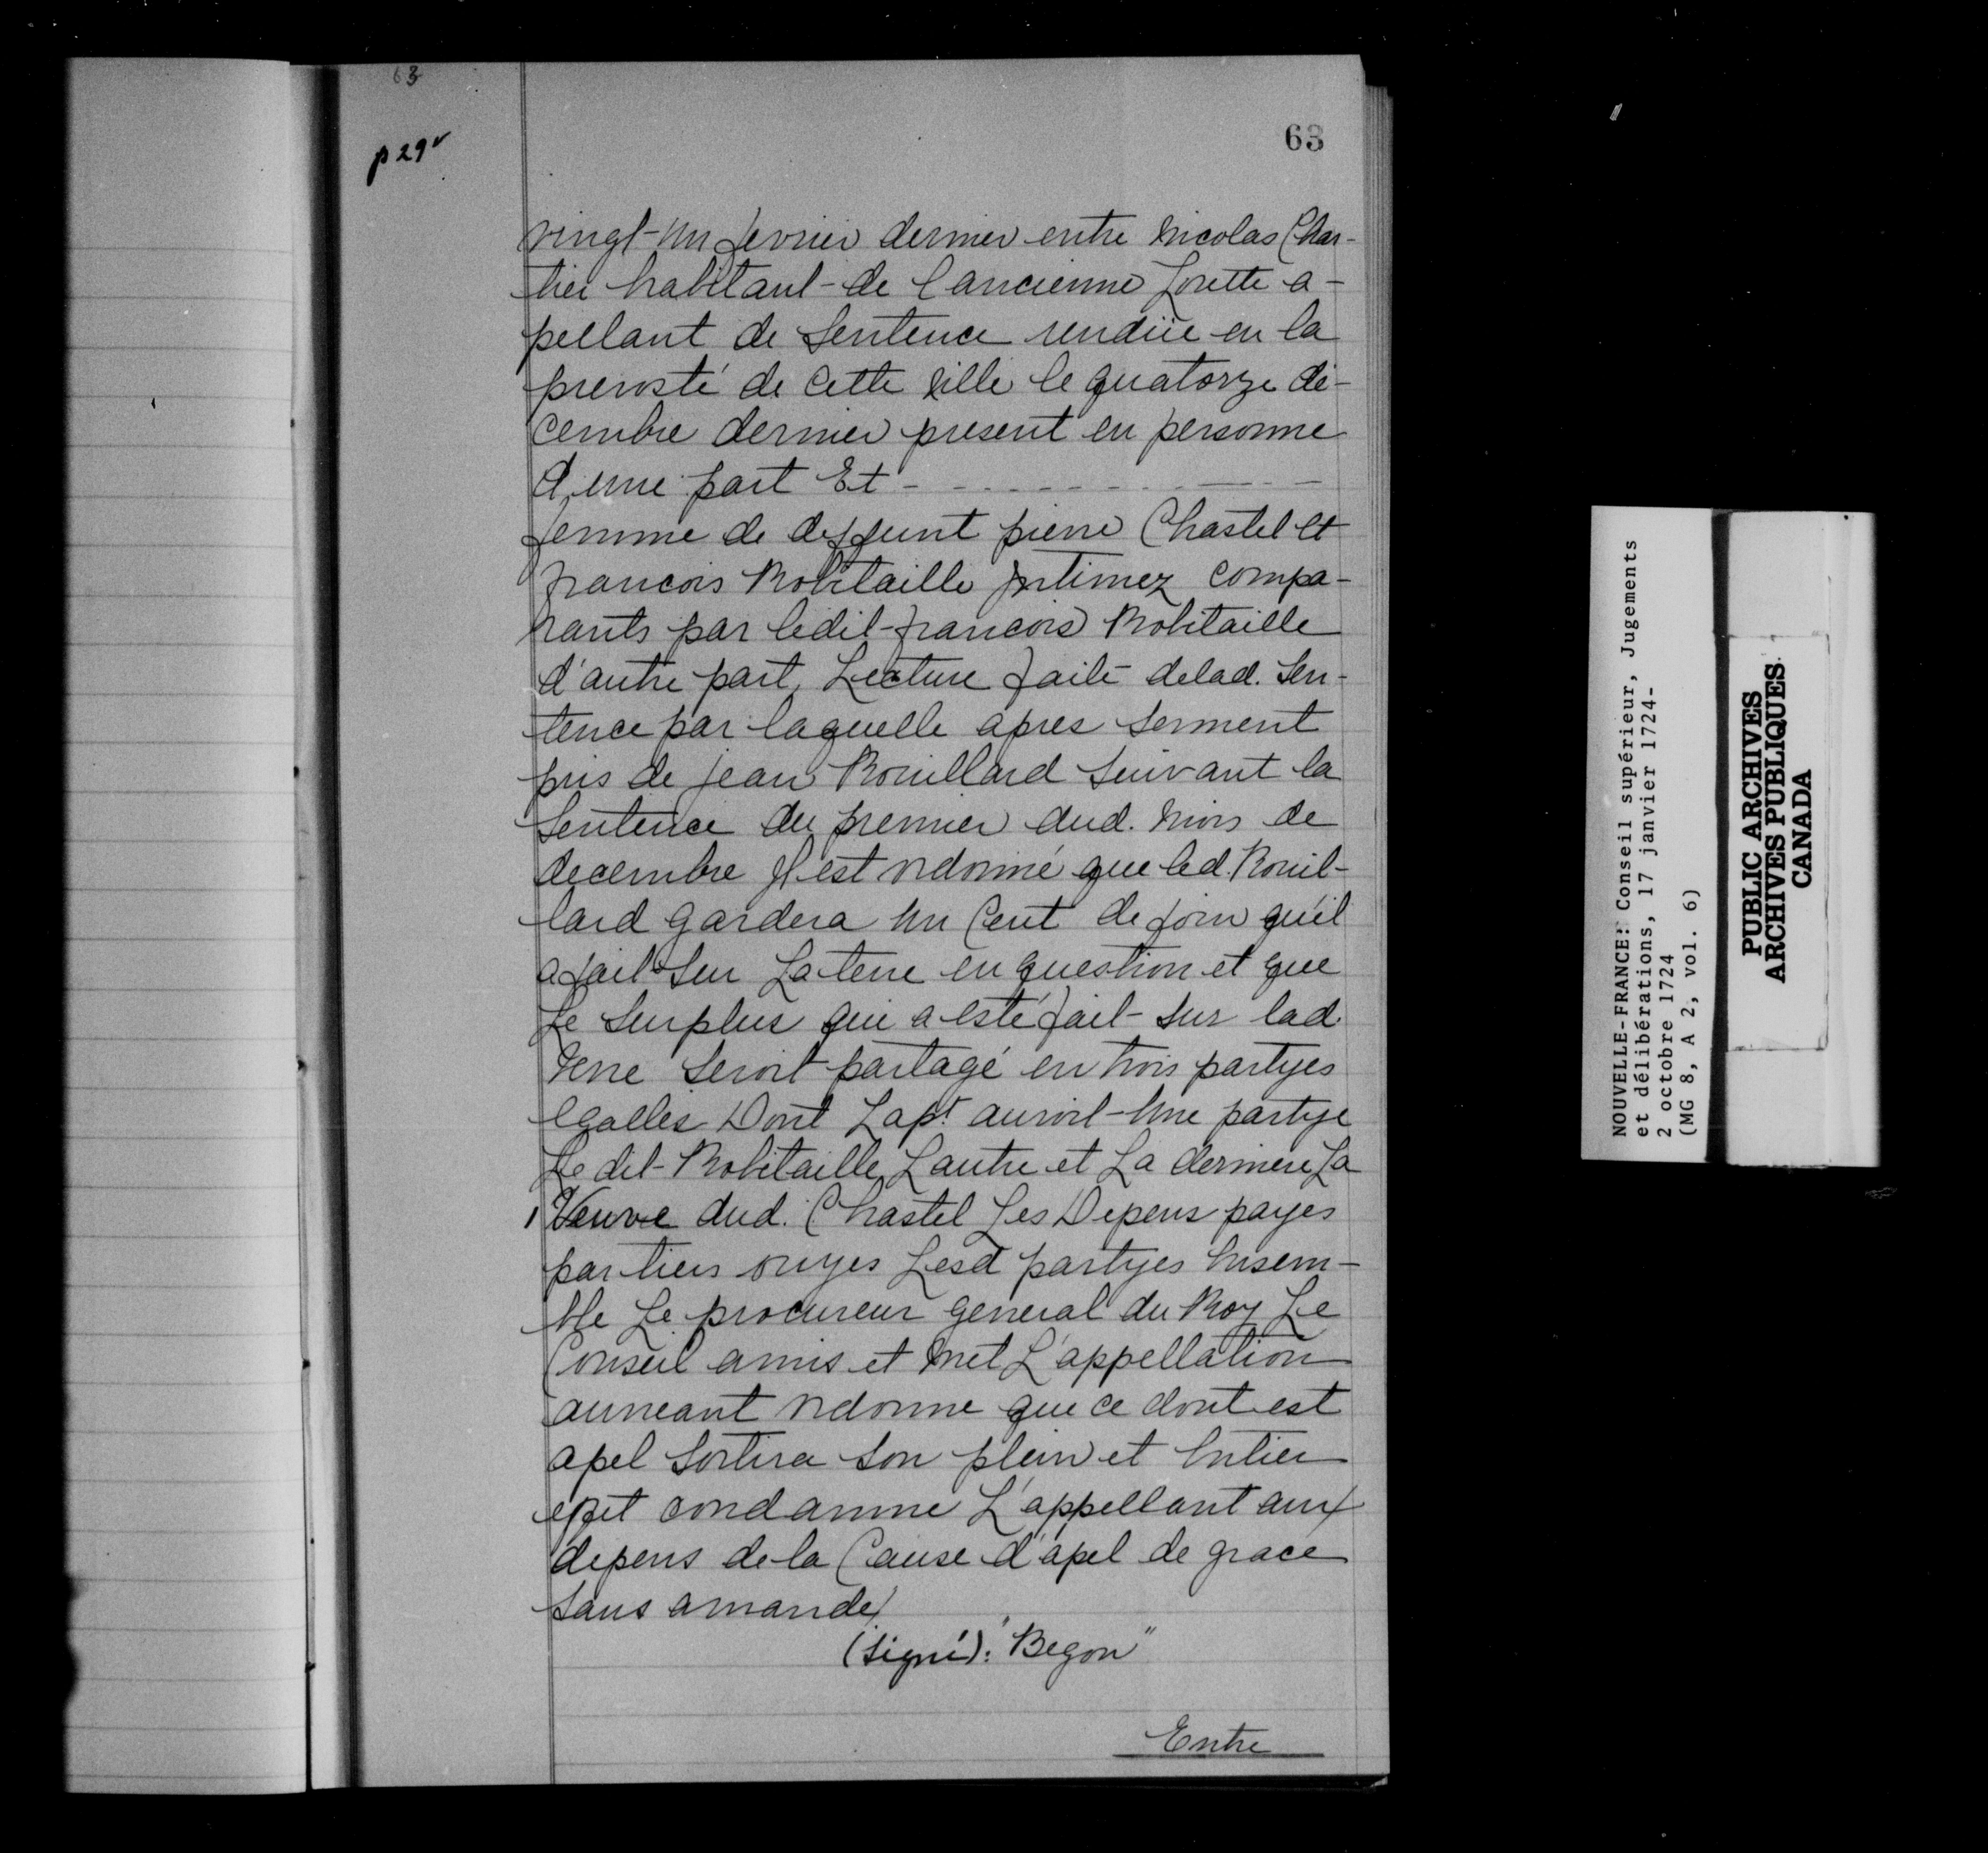 63
p 29v
63
vingt-un fevrier dernier entre Nicolas Char-
tier habitant de l'ancienne Lorette a-
pellant de Sentence rendüe en la
prevosté de Cette ville le quatorze de-
cembre dernier present en personne
d'une part Et - - - - - - - - - - -
femme de deffunt pierre Chastel et
francois Robitaille Intimez compa-
rants par ledit francois Robitaille
d'autre part, Lecture faite delad. Sen-
tence par laquelle apres serment
pris de jean Rouillard Suivant la
Sentence du premier dud. mois de
decembre Il est ordonné que led. Rouil-
lard gardera un Cent de foin qu'il
a fait Sur La terre en question et que
Le Surplus qui a esté fait Sur lad.
terre Seroit partagé en trois partyes
Egalles Dont Lapt. auroit Une partye
Le dit Robitaille L'autre et La derniere La
Veuve dud. Chastel Les Depens payes
par tiers ouyes Lesd partyes Ensem-
ble Le procureur general du Roy Le
Conseil a mis et met L'appellation
au neant ordonne que ce dont est
apel Sortira Son plein et Entier
effet condamne L'appellant aux
depens de la Cause d'apel de grace
Sans amande/
(Signé): "Begon"
Entre
NOUVELLE-FRANCE: Conseil supérieur, Jugements
et délibérations, 17 janvier 1724-
2 octobre 1724
(MG 8, A 2, vol. 6)
PUBLIC ARCHIVES
ARCHIVES PUBLIQUES
CANADA